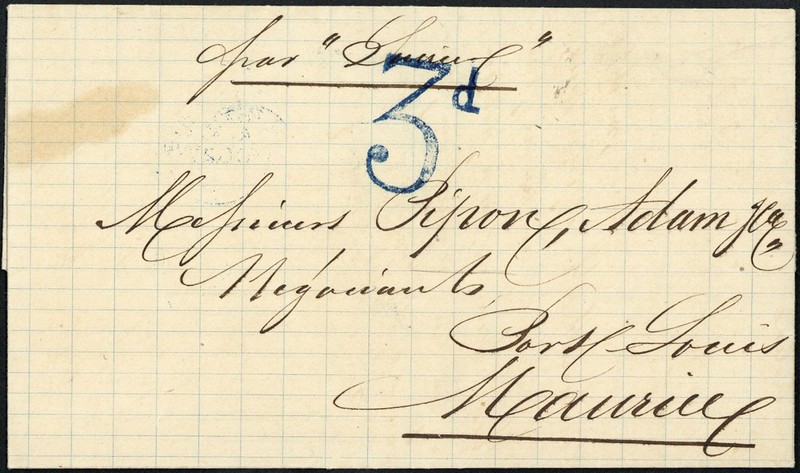 par " "
3d
Messieurs Pipon, Adam & Co.
Négociants
Port Louis
Maurice